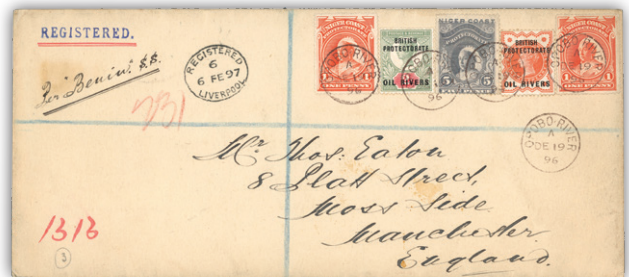 REGISTERED.
Per "Benin" S.S.
REGISTERED
6
6 FE 97
LIVERPOOL
NIGER COAST
ONE PENNY
BRITISH
PROTECTORATE
OIL RIVERS
NIGER COAST
BRITISH
PROTECTORATE
OIL RIVERS
ONE PENNY
OPOBO RIVER
A
DE 19
96
Mr. Thos: Eaton
8 Platt Street,
Moss Side
Manchester
England.
1313
3